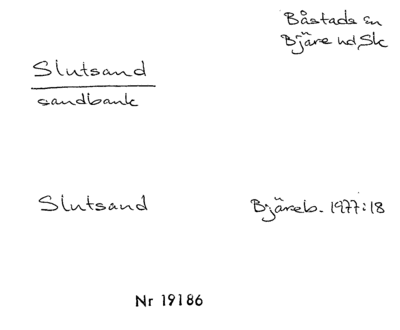 Båstads sn
Bjäre hd, Sk
Slutsand
sandbank
Slutsand
Bjäreb. 1977:18
Nr 19186